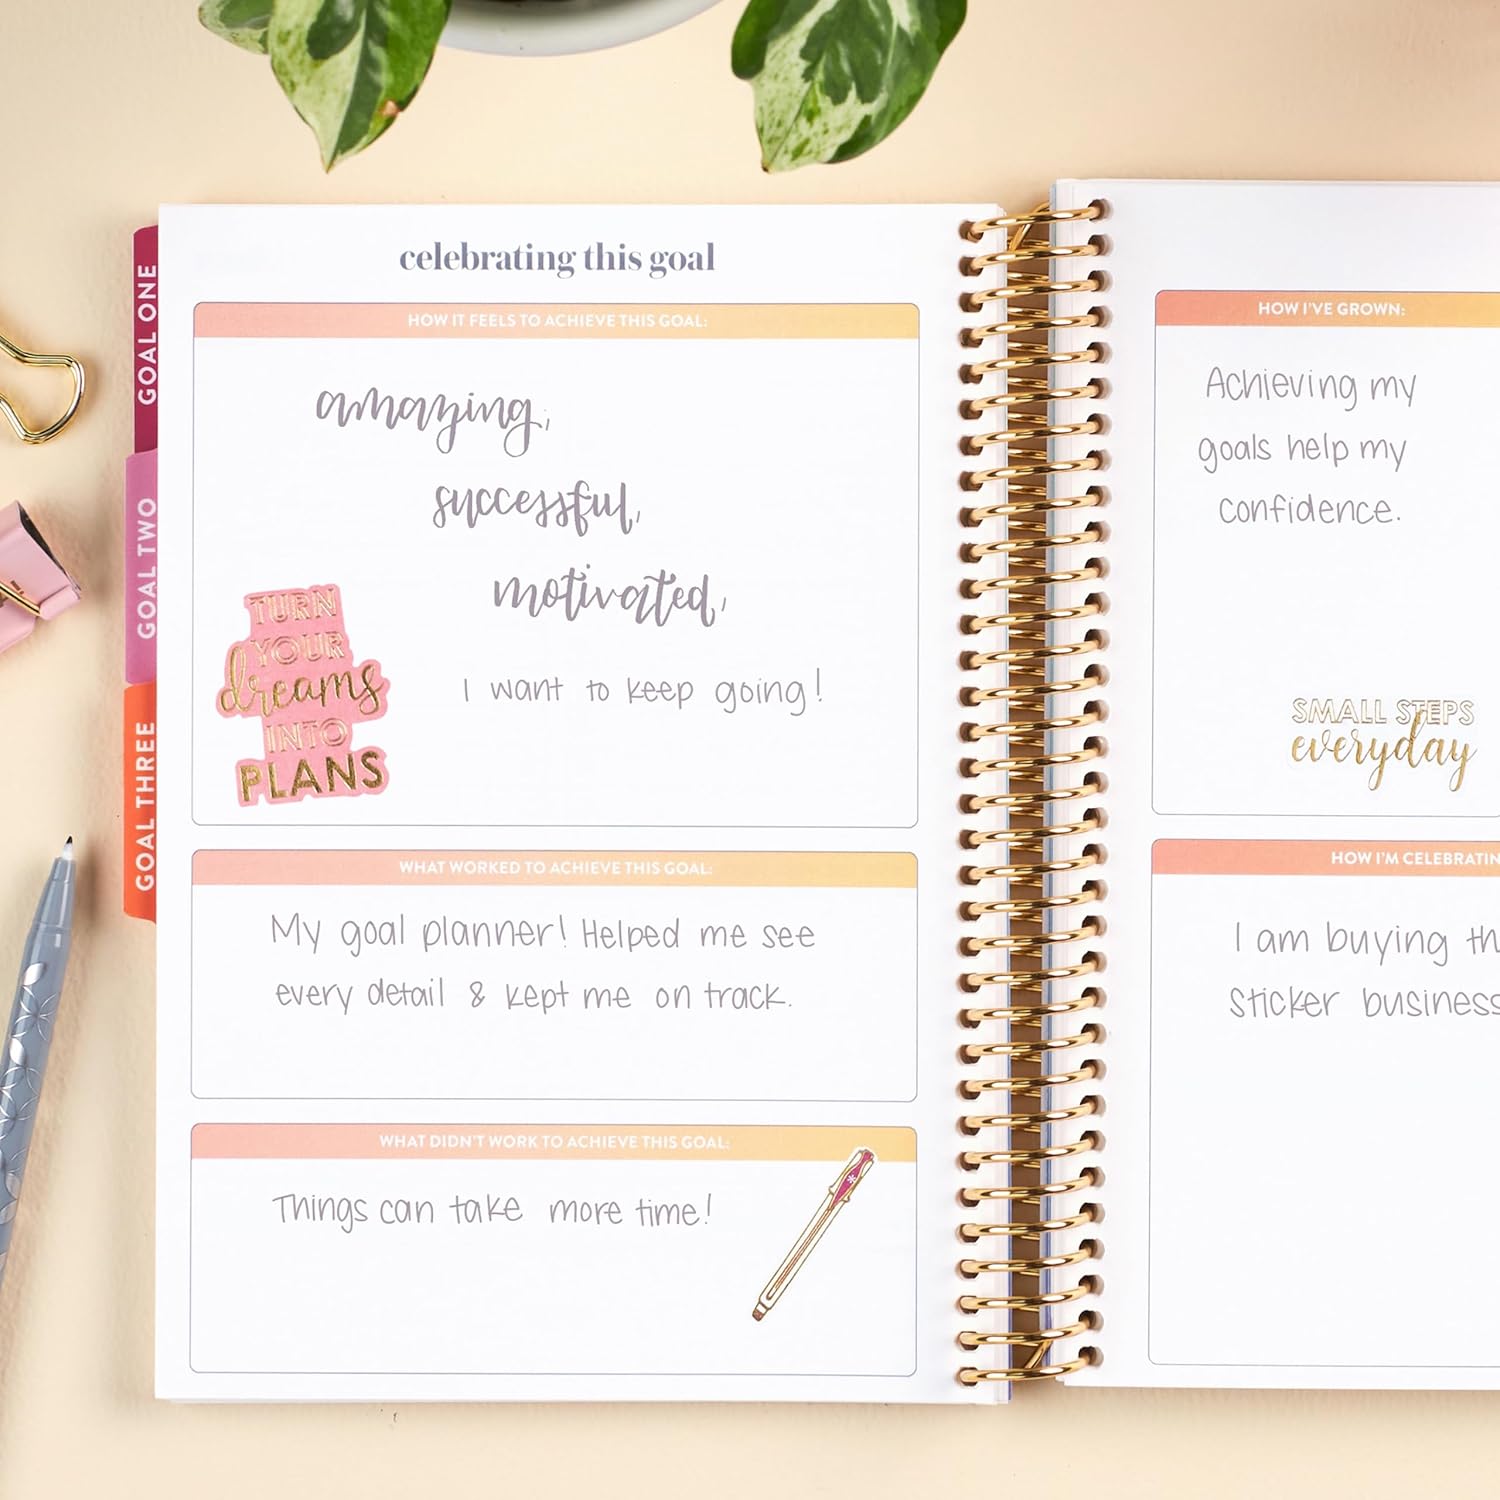 celebrating this goal
GOAL ONE
GOAL TWO
GOAL THREE
HOW IT FEELS TO ACHIEVE THIS GOAL:
amazing,
successful,
motivated,
I want to keep going!
TURN
YOUR
dreams
INTO
PLANS
WHAT WORKED TO ACHIEVE THIS GOAL:
My goal planner! Helped me see
every detail & kept me on track.
WHAT DIDN'T WORK TO ACHIEVE THIS GOAL:
Things can take more time!
HOW I'VE GROWN:
Achieving my
goals help my
confidence.
SMALL STEPS
everyday
HOW I'M CELEBRATIN
I am buying th
sticker business